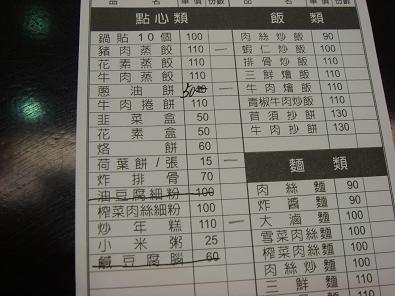 品 名 單價 份數 品 名 單價 份數
點心類
鍋貼10個 100
豬肉蒸餃 110 —
花素蒸餃 110
牛肉蒸餃 110
蔥油餅 50
牛肉捲餅 110
韭菜盒 50
花素盒 50
烙餅 60
荷葉餅/張 15 —
炸排骨 70
油豆腐細粉 100
榨菜肉絲細粉 100
炒年糕 110
小米粥 25
鹹豆腐腦 60
飯類
肉絲炒飯 90
蝦仁炒飯 100
排骨炒飯 110
三鮮燴飯 110
牛肉燴飯 110
青椒牛肉炒飯 110
苜須抄餅 130
牛肉抄餅 130
麵類
肉絲麵 90
炸醬麵 90
大滷麵 100
雪菜肉絲麵 100
榨菜肉絲麵 100
肉絲炒麵 100
三鮮麵 110
110